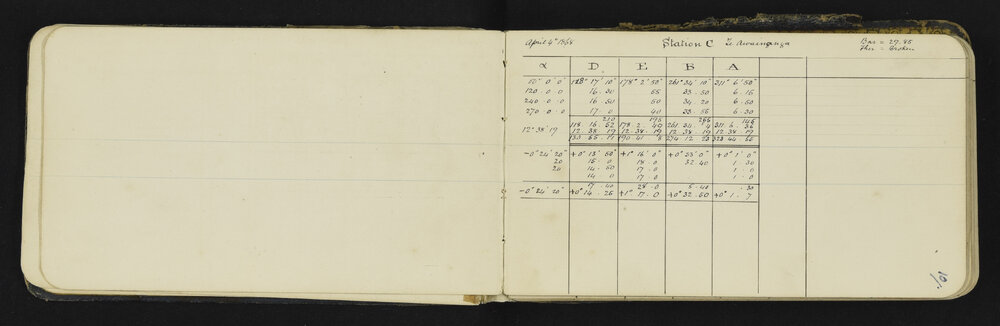 April 4th 1868 Station C Te Bar = 29.85
Ther = Broken
α D E B A
10° 0' 0 118° 17' 10" 178° 2' 50" 261° 34' 10" 311° 6' 50"
120 . 0 . 0 16 . 30 55 33 . 50 6 . 15
240 . 0 . 0 16 . 50 50 34 . 20 6 . 50
270 . 0 . 0 17 . 0 40 33 . 55 6 . 30
210 195 145
118 16 52 178 2 . 49 261 34 . 4 311 6 . 36
12° 38' 19 12 . 38 . 19 12 . 38 . 19 12 . 38 . 19 12 . 38 . 19
190 41 8 274 12 23 323 44 55
-0° 24' 20" +0° 13' 50" +1° 16' 0" +0° 33' 0" +0° 1' 0"
20 15 . 0 18 . 0 32 . 40 1 . 30
20 14 . 50 17 . 0 1 . 0
14 . 0 17 . 0 1 . 0
17 . 40 28 . 0 5 . 40 . 30
-0° 24' 20" +0° 14 . 25 +1° 17 . 0 +0° 32 . 50 +0° 1 . 7
101